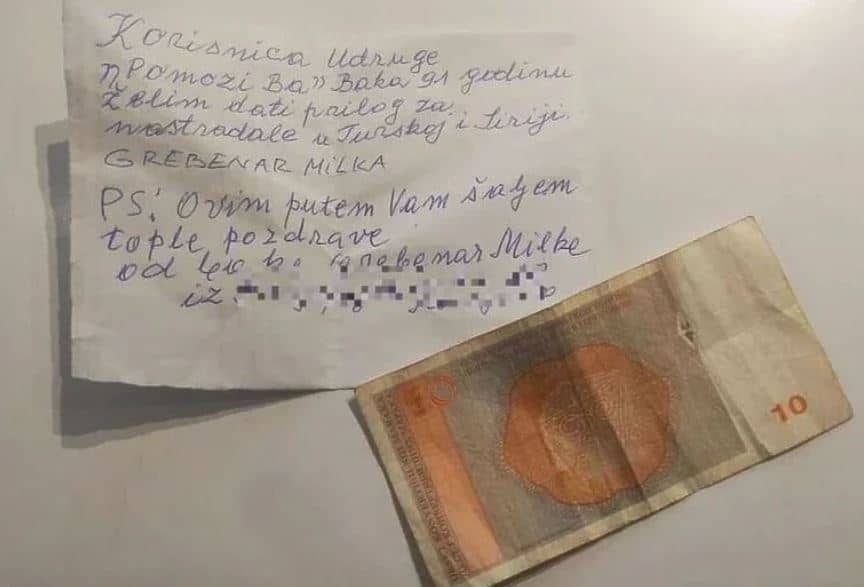 Korisnica Udruge
"Pomozi Ba" Baka 91 godinu
Želim dati prilog za
nastradale u Turskoj i Siriji.
GREBENAR MILKA
PS! Ovim putem Vam šaljem
tople pozdrave
od Grebenar Milke
iz
10